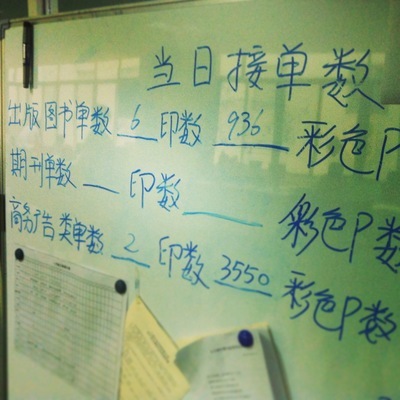 当日接单数
出版图书单数 6 印数 936 彩色P
期刊单数 印数 彩色P数
商务广告类单数 2 印数 3550 彩色P数